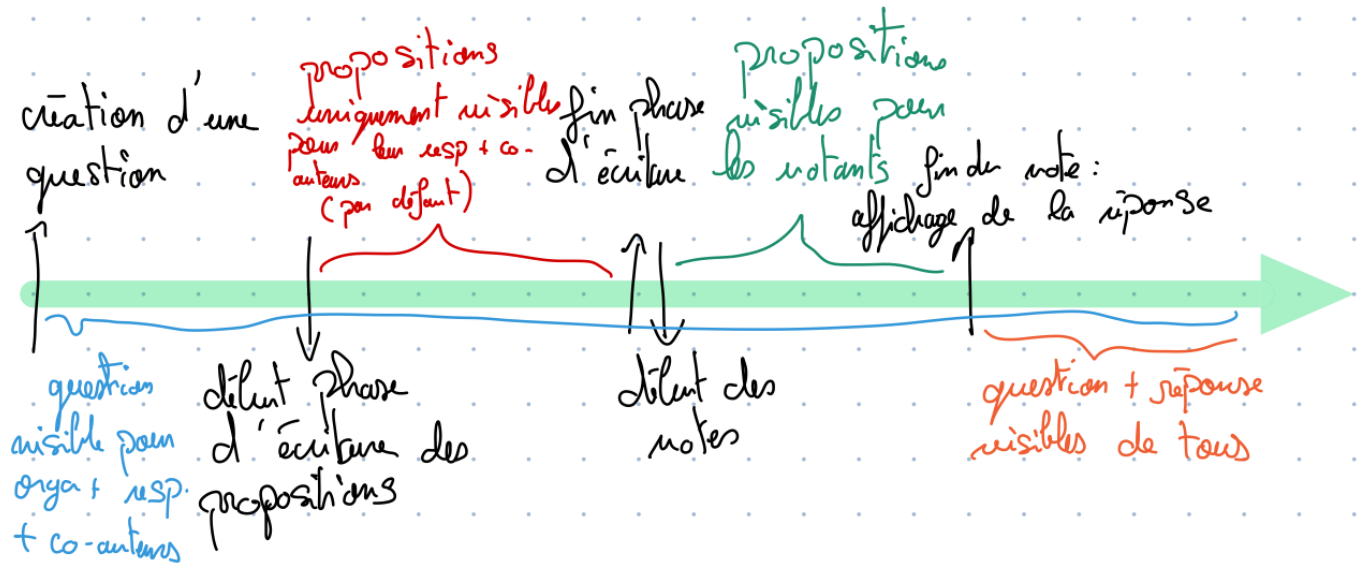 création d'une
question
propositions
uniquement visibles
pour leur resp + co-
auteurs
(par défaut)
fin phase
d'écriture
propositions
visibles pour
les notants
fin des note :
affichage de la réponse
question
visible pour
orga + resp.
+ co-auteurs
début phase
d'écriture des
propositions
début des
notes
question + réponse
visibles de tous